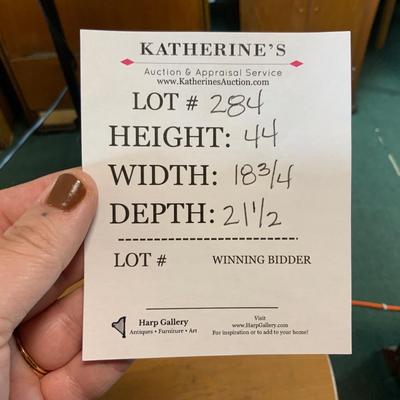 KATHERINE'S
Auction & Appraisal Service
www.KatherinesAuction.com
LOT # 284
HEIGHT: 44
WIDTH: 18 3/4
DEPTH: 21 1/2
LOT # WINNING BIDDER
Harp Gallery
Antiques • Furniture • Art
Visit
www.HarpGallery.com
For inspiration or to add to your home!